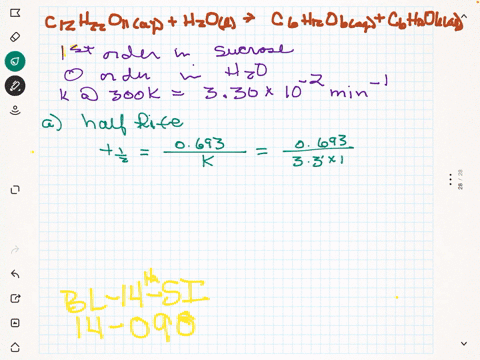 C12H22O11(aq) + H2O(l) → C6H12O6(aq) + C6H12O6(aq)
1st order in sucrose
0 order in H2O
k @ 300K = 3.30 × 10^-2 min^-1
a) half life
t1/2 = 0.693/K = 0.693/3.3 × 1
BL-14th-SI
14-090
28 / 28